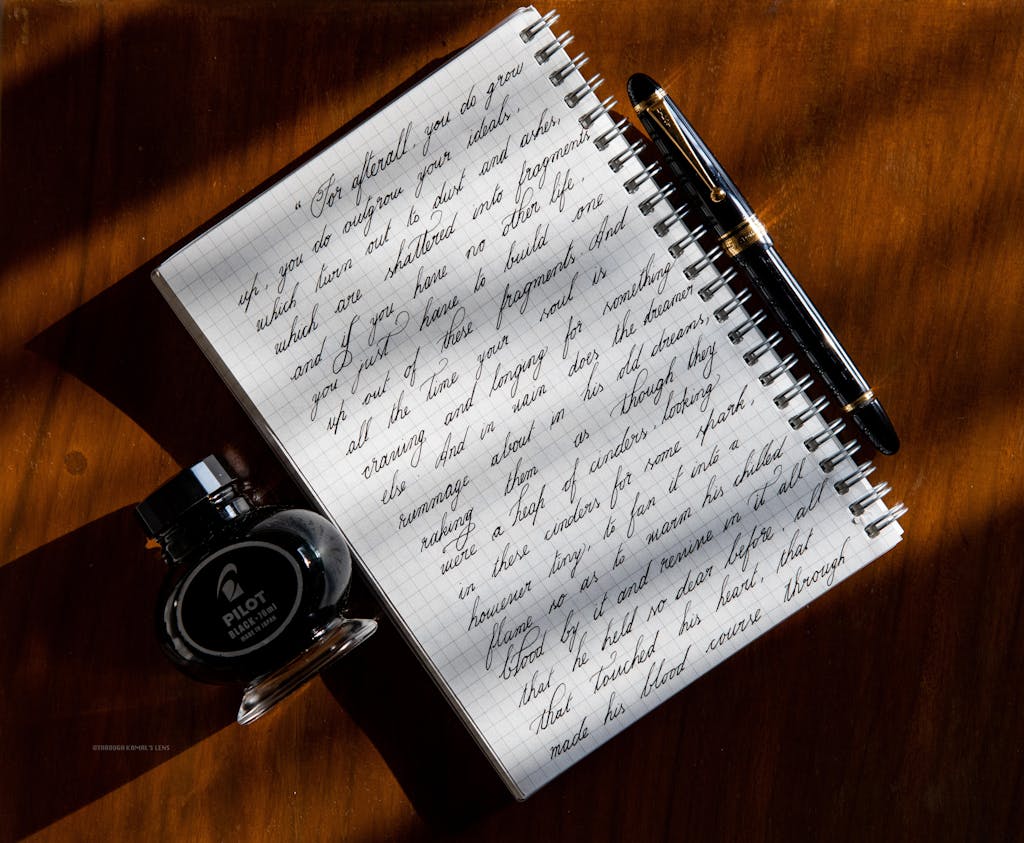 “ For afterall, you do grow
up, you do outgrow your ideals,
which turn out to dust and ashes,
which are shattered into fragments
and if you have no other life,
you just have to build one
up out of these fragments. And
all the time your soul is
craving and longing for something
else. And in vain does the dreamer
rummage about in his old dreams,
raking them as though they
were a heap of cinders, looking
in these cinders for some spark,
however tiny, to fan it into a
flame so as to warm his chilled
blood by it and revive in it all
that he held so dear before, all
that touched his heart, that
made his blood course through
PILOT
BLACK・70ml
MADE IN JAPAN
©THROUGH KAMAL'S LENS